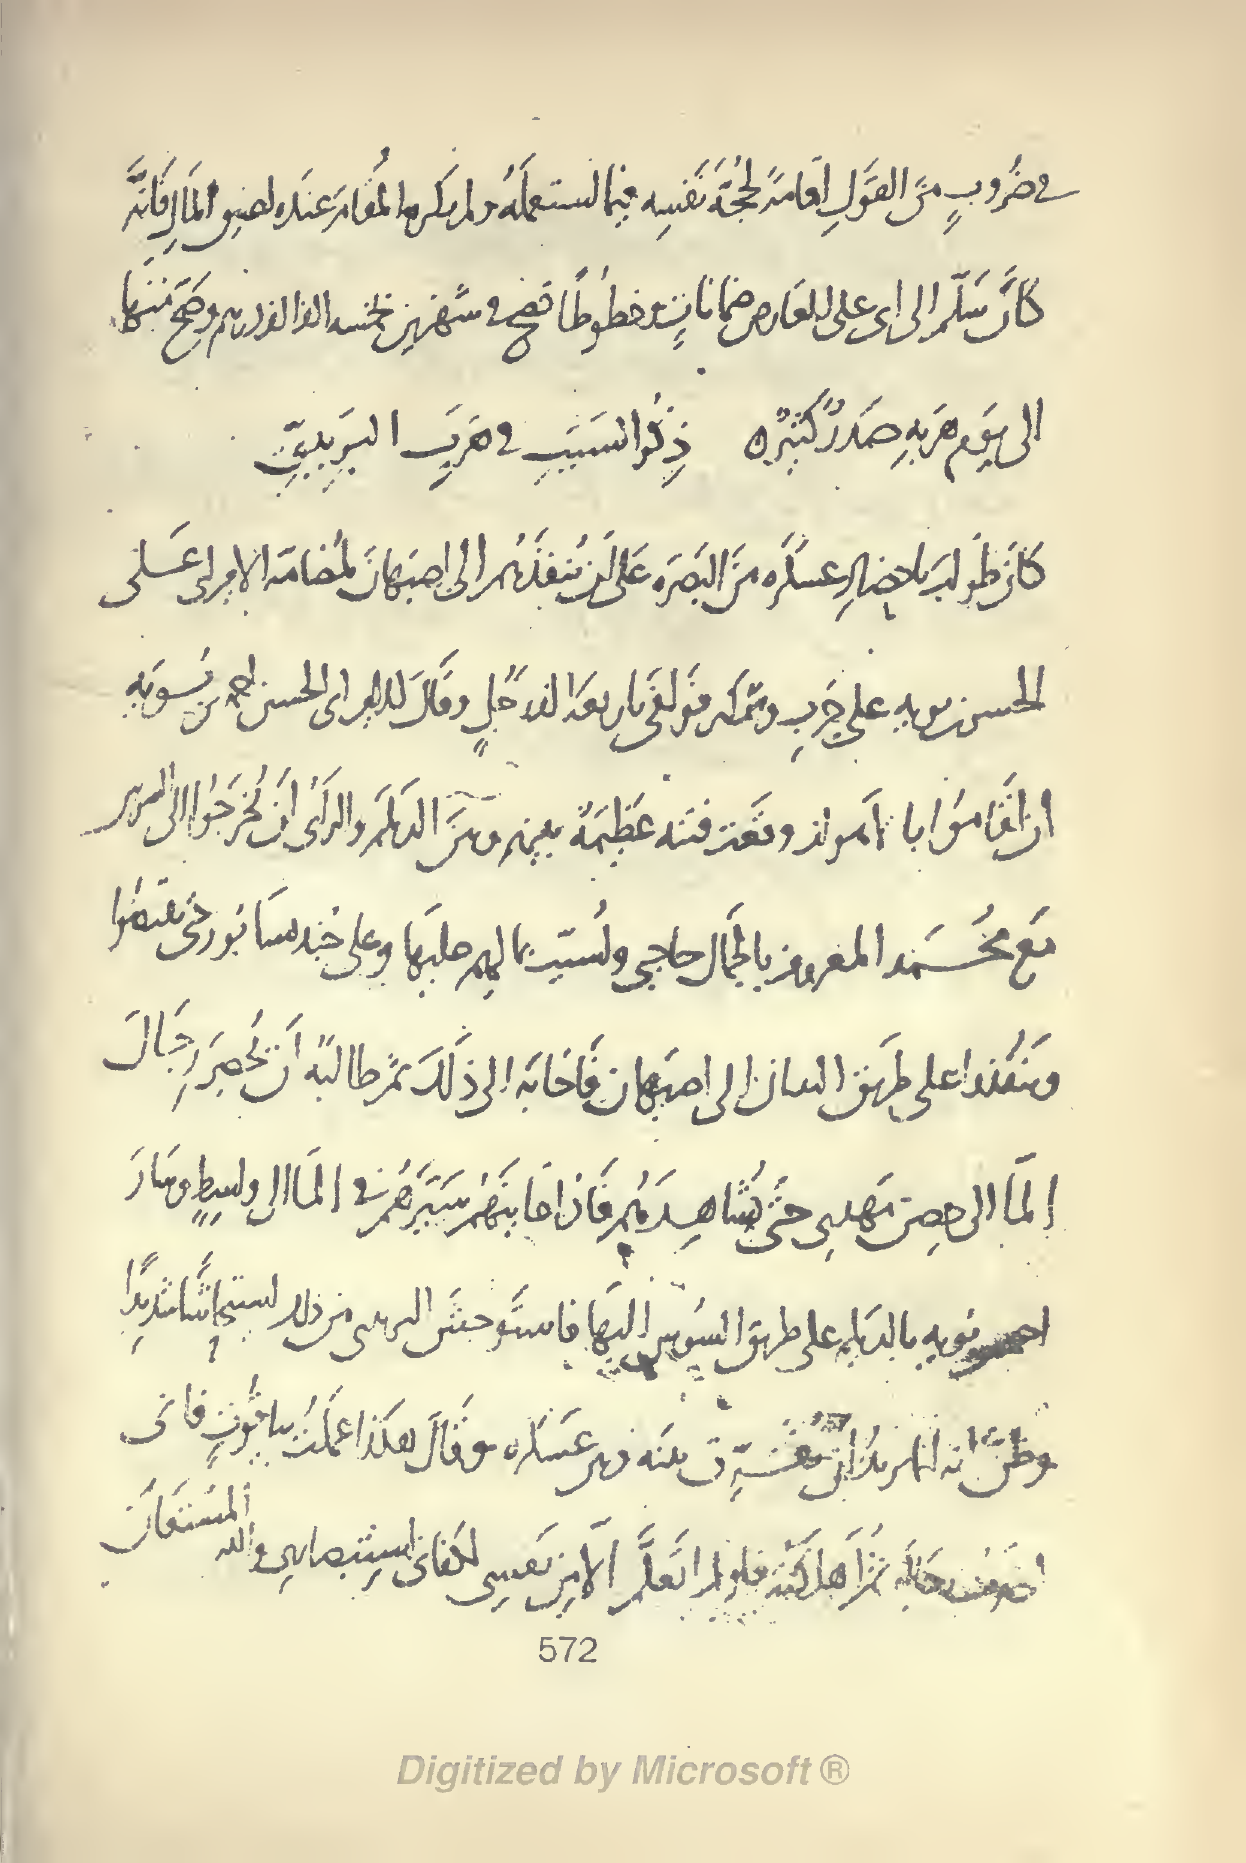 في ضُروبٍ منَ القَولِ اقامةً لحُجّةِ نَفسِه فيما استعملَهُ ولم يكن ما المُقامُ عندَه لضيق المَالِ فانّه
كانَ سَلّم الى ابى على العارض ضمانات وخطوطًا تصح في شهرين بخمسه الف الف درهم وصَحّ منها
الى يوم هربهِ صَدرٌ كثيرٌ ٥ ذِكرُ السَبَبِ في هَرَبِ البَريديِّ
كان طولب باحضار عسكره منَ البَصرَه عَلى ان يُنفذَهُم الى اصبَهانَ لمُضامّة الامير ابى عَلى
الحسن بن بويه على حَربِ وشمكير فوافى باربعة الف رَجُلٍ وقَالَ للامير ابى الحسين احمد بن بُويَه
ان اقَاموُا بالاهواز وقَعَت فتنه عَظِيمَة بينهم وبينَ الديلَم والرَأى ان يَخرجُوا الى السوس
مَع محُمَد المعروف بالجمَال حاجبى ونُسَبِّب بمالهم عليها وعلى جُندَيسابُور حتى يقبضُوا
ويَنفُذوا على طريق البنيان الى اصبهان فاجابَه الى ذلكَ ثُم طالبَه أن يُحضِرَ رِجَالَ
الماَّ الى حصن مَهدى حتّى يُشاهِدَهُم فاذا عاينَهُم سَيّرَهُم في الماَ الى واسِطٍ وسَارَ
احمد بن بويه بالديلم على طريق السُوس اليها فاستَوحشَ البريدى من ذلك استيحاشًا شديدًا
وظنّ انه انما يريدُ ان يُفَرّق بينَه وبين عَسكره وقَالَ هكذا عَملتُ بياقُوتٍ فانى
ثُم اهلكته فلو لم اتَعلّم الا من نَفسِى لكفانى استبصارى والله المُستَعَان
572
Digitized by Microsoft ®